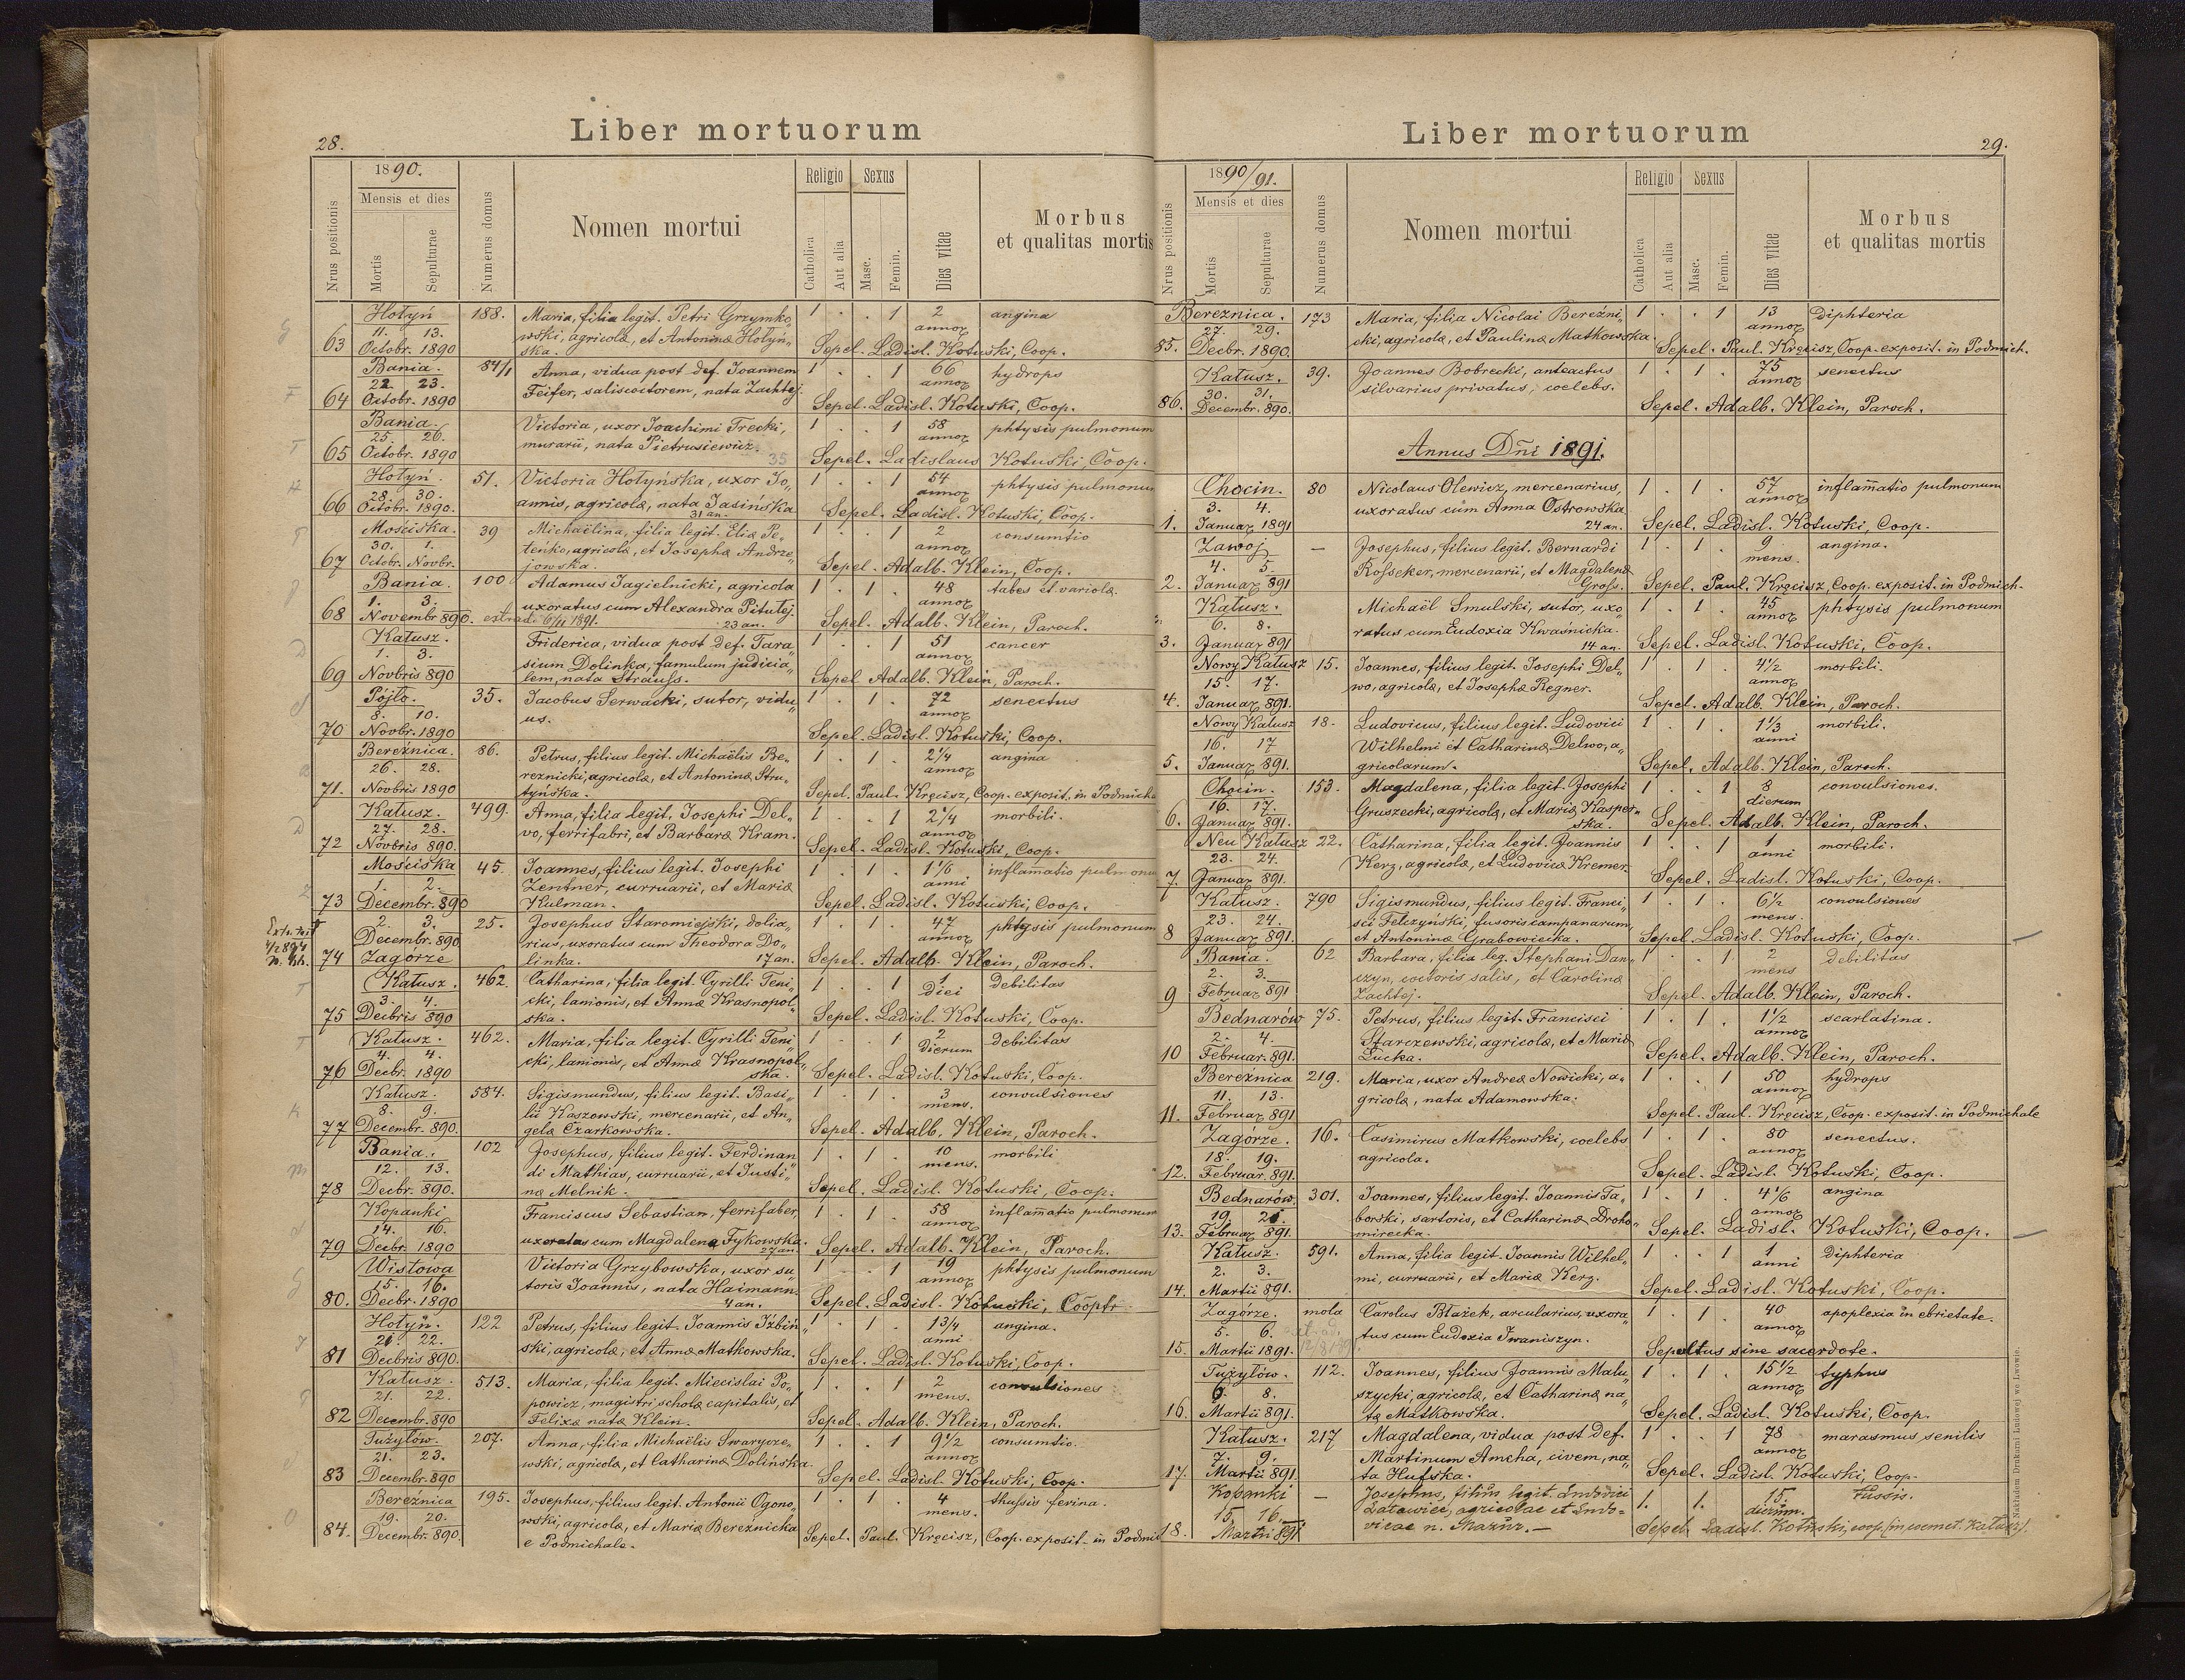 28.
Liber mortuorum
1890.
Mensis et dies
Nrus positionis
Mortis
Sepulturae
Numerus domus
Nomen mortui
Religio
Sexus
Catholica
Aut alia
Masc.
Femin.
Dies vitae
Morbus
et qualitas mortis
Hołyń 188. Maria, filia legit. Petri Grzymko„ 1 . . 1 2 angina
11. 13. wski, agricolæ, et Antoninæ Hołyń„ annor
63 Octobr. 1890 ska. Sepel. Ladisl. Kotuski, Coop.
Bania. 84/1 Anna, vidua post def. Joannem 1 . . 1 66 hydrops
22 23. Feifer, saliscoctorem, nata Zachtej. annor
64 Octobr. 1890 Sepel. Ladisl. Kotuski, Coop.
Bania. Victoria, uxor Joachimi Trecki, 1 . . 1 58 phtysis pulmonum
25. 26. murarii, nata Pietrusiewicz. annor
65 Octobr. 1890 35 Sepel. Ladislaus Kotuski, Coop.
Hołyń. 51. Victoria Hołyńska, uxor Jo„ 1 . . 1 54 phtysis pulmonum
28. 30. annis, agricolæ, nata Jasińska annor
66 Octobr. 1890. 31 an. Sepel. Ladisl. Kotuski, Coop.
Mościska. 39 Michaëlina, filia legit. Eliæ Pe„ 1 . . 1 2 consumtio
30. 1. teńko, agricolæ, et Josephæ Andrze„ annor
67 Octobr. Novbr. jowska. Sepel. Adalb. Klein, Coop.
Bania. 100 Adamus Jagielnicki, agricola 1 . 1 . 48 tabes et variolæ.
1. 3. uxoratus cum Alexandra Pitułej. annor
68 Novembr 890. extradi 6/11 1891. 23 an. Sepel. Adalb. Klein, Paroch.
Kałusz. Friderica, vidua post def. Tara„ 1 . . 1 51 cancer
1. 3. sium Dolinka, famulum judicia„ annor
69 Novbris 890 lem, nata Strauss. Sepel Adalb. Klein, Paroch.
Pójło. 35. Jacobus Serwacki, sutor, vidu„ 1 . 1 . 72 senectus
8. 10. us. annor
70 Novbr. 1890 Sepel. Ladisl. Kotuski, Coop.
Bereźnica. 86. Petrus, filius legit. Michaëlis Be„ 1 . 1 . 2 1/4 angina
26. 28. reznicki, agricolæ, et Antoninæ Stru„ annor
71. Novbris 1890 tyńska. Sepel. Paul. Kręcisz, Coop. exposit. in Podmicha
Kałusz. 499. Anna, filia legit. Josephi Del„ 1 . . 1 2 1/4 morbili.
27. 28. vo, ferrifabri, et Barbaræ Kram. annor
72 Novbris 890. Sepel. Ladisl. Kotuski, Coop.
Mościska 45. Joannes, filius legit. Josephi 1 . 1 . 1 1/6 inflamatio pulmonum
1. 2. Zentner, curruarii, et Mariæ anni
73 Decembr. 890 Kulman. Sepel. Ladisl. Kotuski, Coop.
2. 3. 25. Josephus Staromiejski, dolia„ 1 . 1 . 47 phtysis pulmonum
Decembr. 890 rius, uxoratus cum Theodora Do„ annor
74 Zagórze linka. 17 an. Sepel. Adalb. Klein, Paroch.
Kałusz. 462. Catharina, filia legit. Cyrilli Teni„ 1 . . 1 1 Debilitas
3. 4. cki, lanionis, et Annæ Krasnopol„ Diei
75 Decbris 890 ska. Sepel. Ladisl. Kotuski, Coop.
Kałusz. 462. Maria, filia legit. Cyrilli Teni„ 1 . . 1 2 debilitas
4. 4. cki, lanionis, et Annæ Krasnopol„ Dierum
76 Decbr. 1890 ska. Sepel. Ladisl. Kotuski, Coop.
Kałusz. 584. Sigismundus, filius legit. Basi„ 1 . 1 . 3 convulsiones
8. 9. lii Kaszowski, mercenarii, et An„ mens.
77 Decembr. 890. gelæ Czarkowska. Sepel. Adalb. Klein, Paroch.
Bania. 102 Josephus, filius legit. Ferdinan„ 1 . 1 . 10 morbili
12. 13. di Mathias, curruarii, et Justi„ mens.
78 Decbr. 890. næ Melnik. Sepel. Ladisl. Kotuski, Coop.
Kopanki Franciscus Sebastian, ferrifaber, 1 . 1 . 58 inflamatio pulmonum
14. 16. uxoratus cum Magdalena Fykowska. annor
79 Decbr. 1890 27 an. Sepel. Adalb. Klein, Paroch.
Wistowa Victoria Grzybowska, uxor su„ 1 . . 1 19 phtysis pulmonum
15. 16. toris Joannis, nata Haimann. annor
80. Decbr. 1890 4 an. Sepel. Ladisl. Kotuski, Cooptr
Hołyń. 122 Petrus, filius legit. Joannis Iżbiń„ 1 . 1 . 1 3/4 angina.
21 22. ski, agricolæ, et Annæ Matkowska. anni
81 Decbris 890. Sepel. Ladisl. Kotuski, Coop.
Kałusz. 513. Maria, filia legit. Miecislai Po„ 1 . . 1 2 convulsiones
21. 22. powicz, magistri scholæ capitalis, et mens.
82 Decembr. 890 Felixæ natæ Klein. Sepel. Adalb. Klein, Paroch.
Tużyłów. 207. Anna, filia Michaëlis Swarycze„ 1 . . 1 9 1/2 consumtio.
21. 23. wski, agricolæ, et Catharinæ Dolińska. annor
83 Decembr. 890 Sepel. Ladisl. Kotuski, Coop.
Bereźnica 195. Josephus, filius legit. Antonii Ogono„ 1 . 1 . 4 thussis ferina.
19. 20. wski, agricolæ, et Mariæ Bereźnicka mens.
84. Decembr. 890. e Podmichale. Sepel. Paul. Kręcisz, Coop. exposit. in Podmic
29.
Liber mortuorum
1890/91.
Mensis et dies
Nrus positionis
Mortis
Sepulturae
Numerus domus
Nomen mortui
Religio
Sexus
Catholica
Aut alia
Masc.
Femin.
Dies vitae
Morbus
et qualitas mortis
Bereznica. 173 Maria, filia Nicolai Bereźni„ 1 . . 1 13 Diphteria
27. 29. cki, agricolæ, et Paulinæ Matkowska. annor
85. Decbr. 1890. Sepel. Paul. Kręcisz, Coop. exposit. in Podmich.
Kałusz. 39. Joannes Bobrecki, anteactus 1 . 1 . 75 senectus
30. 31. silvarius privatus, coelebs. annor
86. Decembr. 890. Sepel. Adalb. Klein, Paroch.
Annus Dñi 1891.
Chocin. 80 Nicolaus Olewicz, mercenarius, 1 . 1 . 57 inflamatio pulmonum
3. 4. uxoratus cum Anna Ostrowska annor
1. Januar 1891 24 an. Sepel. Ladisl. Kotuski, Coop.
Zawoj — Josephus, filius legit. Bernardi 1 . 1 . 9 angina.
4. 5. Rosseker, mercenarii, et Magdalenæ mens.
2. Januar 891 Gross. Sepel. Paul. Kręcisz, Coop. exposit. in Podmich.
Kałusz. Michaël Smulski, sutor, uxo 1 . 1 . 45 phtysis pulmonum
6. 8. ratus cum Eudoxia Kwaśnicka. annor
3. Januar 891 14 an. Sepel. Ladisl. Kotuski, Coop.
Nowy Kałusz 15. Joannes, filius legit. Josephi Del„ 1 . 1 . 4 1/2 morbili.
15. 17. wo, agricolæ, et Josephæ Regner. annor
4. Januar 891. Sepel. Adalb. Klein, Paroch.
Nowy Kałusz 18. Ludovicus, filius legit. Ludovici 1 . 1 . 1 1/3 morbili.
16. 17 Wilhelmi et Catharinæ Delwo, a„ anni
5. Januar 891. gricolarum. Sepel. Adalb. Klein, Paroch.
Chocin. 153. Magdalena, filia legit. Josephi 1 . . 1 8 convulsiones.
16. 17. Gruszecki, agricolæ, et Mariæ Kasper„ dierum
6. Januar 891. ska. Sepel. Adalb. Klein, Paroch.
Neu Kałusz 22. Catharina, filia legit. Joannis 1 . . 1 1 morbili.
23. 24. Kerz, agricolæ, et Ludovicæ Kremer. anni
7. Januar 891. Sepel. Ladisl. Kotuski, Coop.
Kałusz. 790 Sigismundus, filius legit. Franci„ 1 . 1 . 6 1/2 convulsiones
23. 24. sci Felczyński, fusoris campanarum, mens.
8 Januar 891. et Antoninæ Grabowiecka. Sepel. Ladisl. Kotuski, Coop.
Bania. 62 Barbara, filia leg. Stephani Dan„ 1 . . 1 2 debilitas
2. 3. czyn, coctoris salis, et Carolinæ mens
9 Februar 891 Zachtej. Sepel. Adalb. Klein, Paroch.
Bednarów 75. Petrus, filius legit. Francisci 1 . 1 . 1 1/2 scarlatina.
2. 4. Starczewski, agricolæ, et Mariæ annor
10 Februar. 891. Łucka. Sepel. Adalb. Klein, Paroch.
Bereźnica 219. Maria, uxor Andreæ Nowicki, a„ 1 . . 1 50 hydrops
11. 13. gricolæ, nata Adamowska. annor
11. Februar 891 Sepel. Paul. Kręcisz, Coop. exposit. in Podmichale
Zagórze. 16. Casimirus Matkowski, coelebs 1 . 1 . 80 senectus.
18. 19. agricola. annor
12. Februar. 891. Sepel. Ladisl. Kotuski, Coop.
Bednarów. 301. Joannes, filius legit. Joannis Ta„ 1 . 1 . 4 1/6 angina
19. 21. borski, sartoris, et Catharinæ Droho„ annor
13. Februar 891. mirecka. Sepel. Ladisl. Kotuski, Coop.
Kałusz. 591. Anna, filia legit. Joannis Wilhel„ 1 . . 1 1 Diphteria
2. 3. mi, curruarii, et Mariæ Kerz. anni
14. Martii 891. Sepel. Ladisl. Kotuski, Coop.
Zagórze. mola Carolus Błażek, arcularius, uxora„ 1 . 1 . 40 apoplexia in ebrietate.
5. 6. tus cum Eudoxia Iwaniszyn. annor
15. Martii 1891. Sepultus sine sacerdote.
Tużyłów. 112. Joannes, filius Joannis Matu„ 1 . 1 . 15 1/2 typhus
6. 8. szycki, agricolæ, et Catharinæ na„ annor
16. Martii 891. tæ Matkowska. Sepel. Ladisl. Kotuski, Coop.
Kałusz. 217 Magdalena, vidua post def. 1 . . 1 78 marasmus senilis
7. 9. Martinum Amcha, civem, na„ annor
17. Martii 891. ta Hutska. Sepel. Ladisl. Kotuski, Coop.
Kopanki — Josephus, filius legit. Ludovici 1. 1. 15 Tussis.
15 16. agricolae et Ludo- dierum.
18. Martii 891 vicae n. Mazur. — Sepel. Ladisl. Kotuski, coop. (in coemet. Kałusz).
Nakładem Drukarni Ludowej we Lwowie.